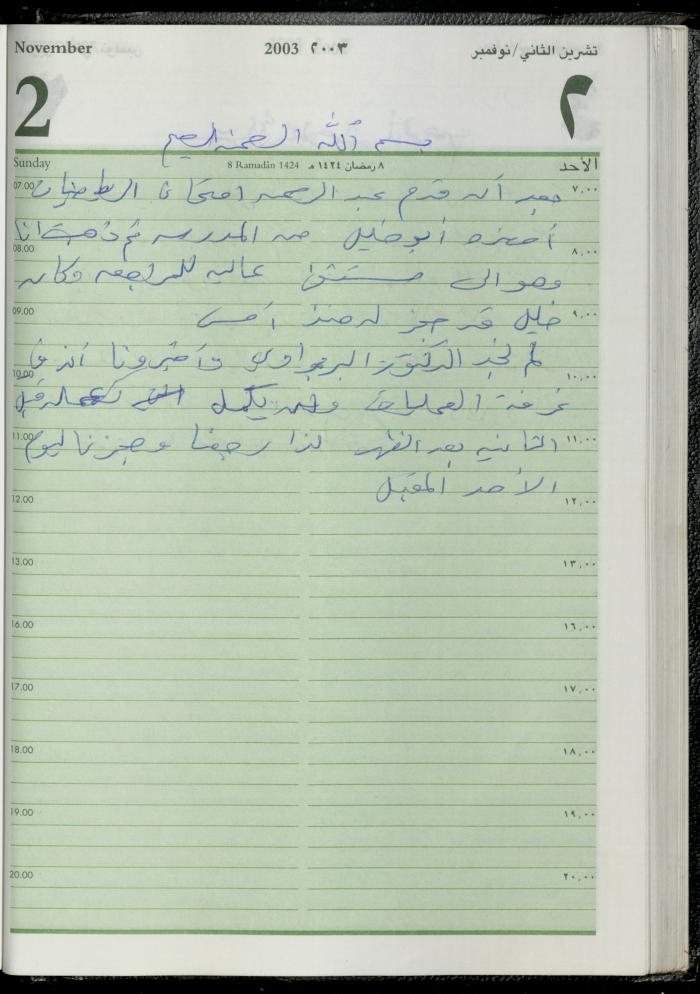 November 2003 ٢٠٠٣ تشرين الثاني/نوفمبر
2 ٢
بسم الله الرحمن الرحيم
Sunday 8 Ramadān 1424 ٨ رمضان ١٤٢٤ هـ الأحد
07.00 بعد أن قدم عبد الرحمن امتحان الرياضيات ٧,٠٠
أحضره أبو خليل من المدرسه ثم ذهبت انا
08.00 ٨,٠٠
وهو الى مستشفى عاليه للمراجعه وكان
09.00 خليل قد حجز له منذ أمس ٩,٠٠
لم نجد الدكتور البرغواوي وأخبرونا أنه في
10.00 ١٠,٠٠
غرفة العمليات ولن يكمل عمله قبل
11.00 الثانيه بعد الظهر لذا رجعنا وحجزنا ليوم ١١,٠٠
الأحد المقبل
12.00 ١٢,٠٠
13.00 ١٣,٠٠
16.00 ١٦,٠٠
17.00 ١٧,٠٠
18.00 ١٨,٠٠
19.00 ١٩,٠٠
20.00 ٢٠,٠٠